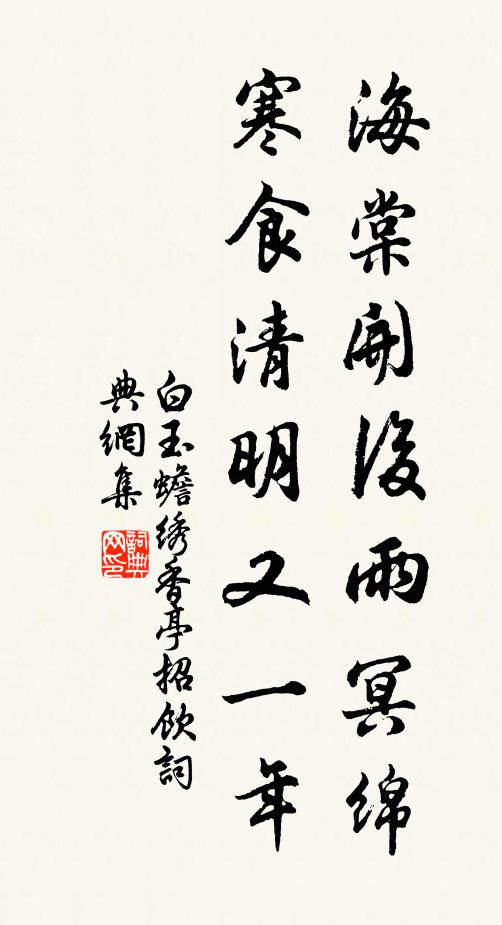 海棠開後雨冥綿
寒食清明又一年
白玉蟾綉香亭招飲詞
典網集
詞典网印